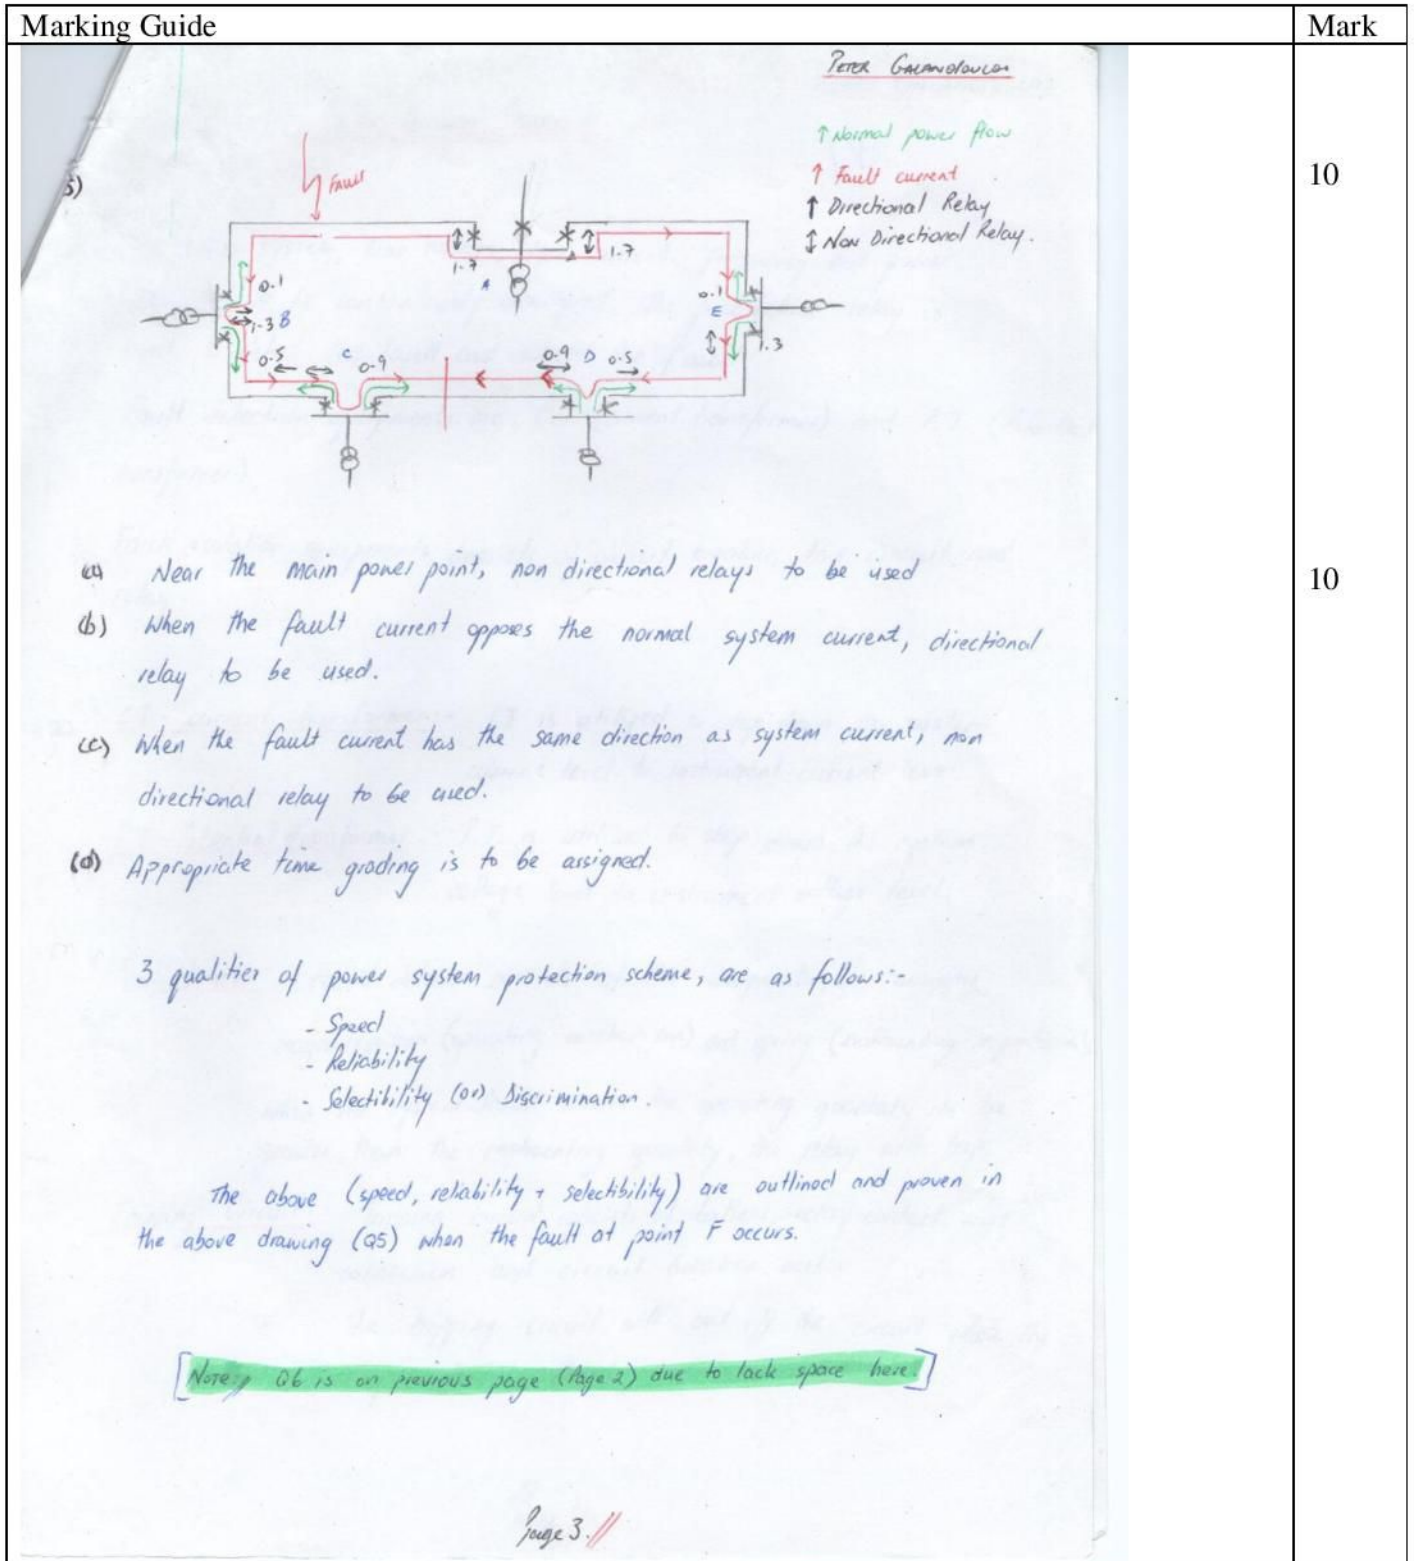 Marking Guide
Mark
PETER GALANOPOULOS
↑ Normal power flow
10
5)
Fault
↑ Fault current
↑ Directional Relay
↕ Non Directional Relay.
1.7
1.7
A
0.1
0.1
1.3 B
E
1.3
0.5
C
0.9
0.9
D
0.5
(a) Near the main power point, non directional relays to be used
10
(b) When the fault current opposes the normal system current, directional
relay to be used.
(c) When the fault current has the same direction as system current, non
directional relay to be used.
(d) Appropriate time grading is to be assigned.
3 qualities of power system protection scheme, are as follows:-
- Speed
- Reliability
- Selectibility (or) Discrimination.
The above (speed, reliability + selectibility) are outlined and proven in
the above drawing (Q5) when the fault at point F occurs.
[Note:, Q6 is on previous page (Page 2) due to lack space here.]
Page 3.//